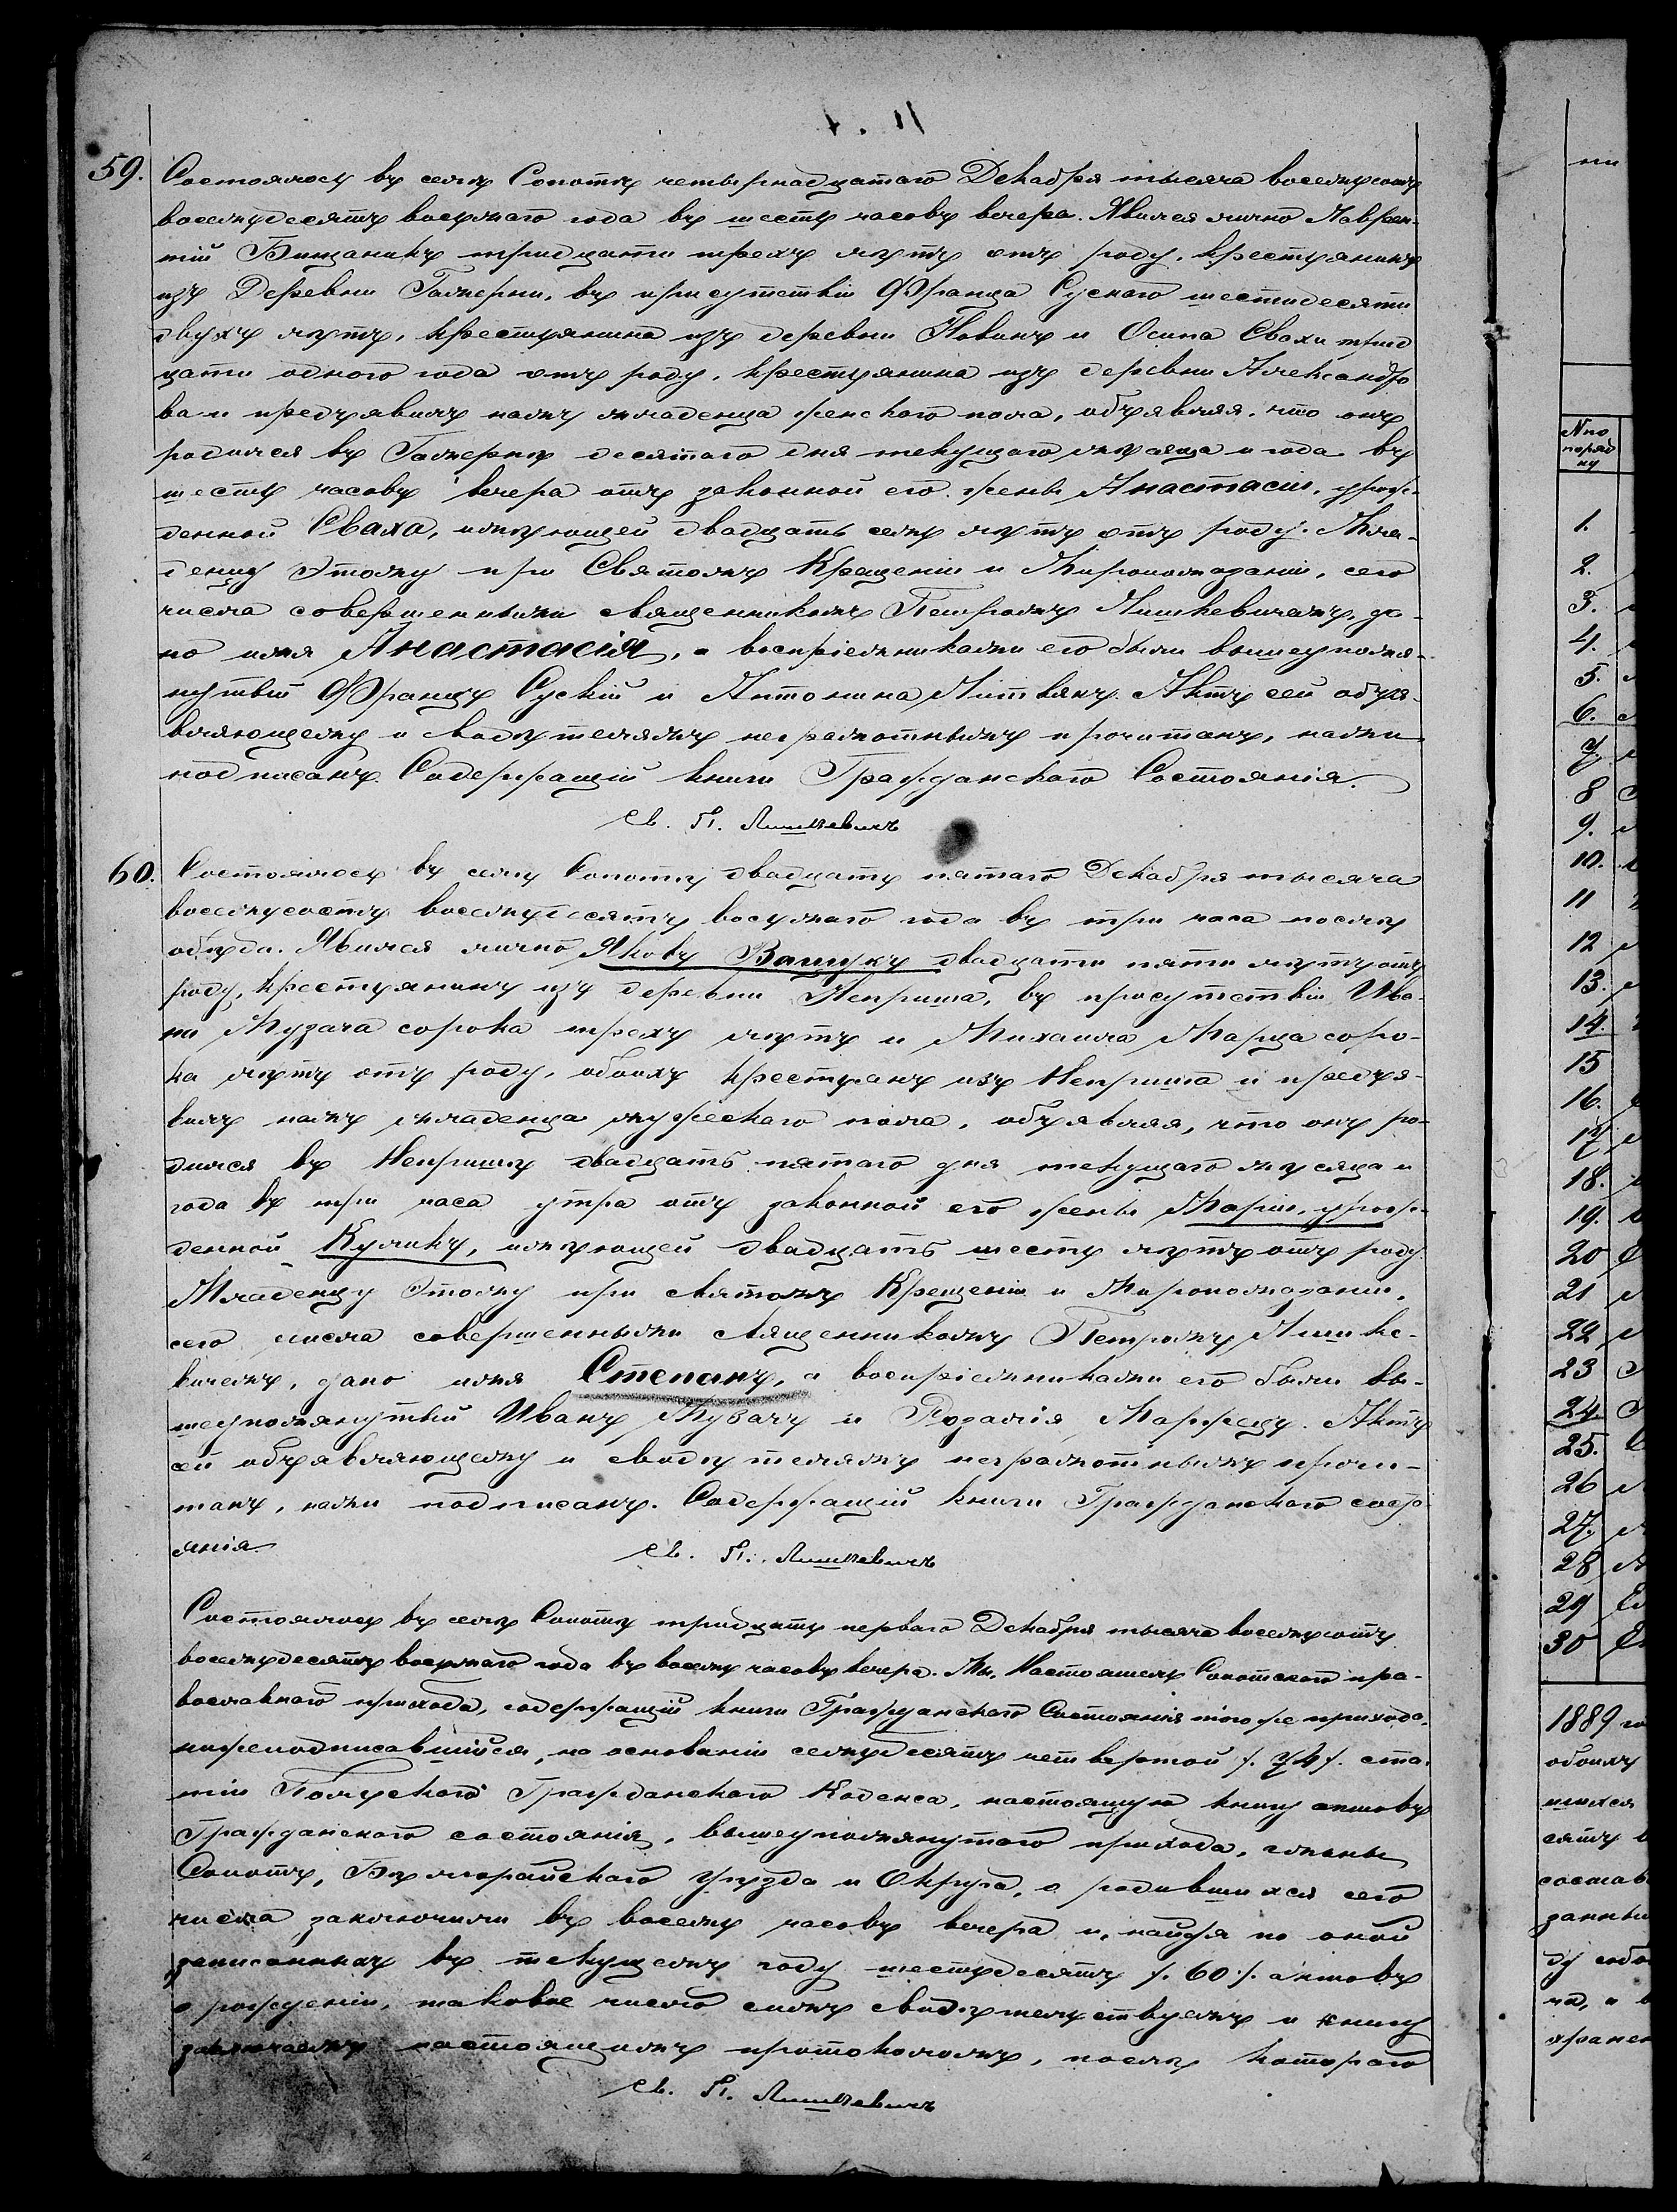 59. Состоялось въ селѣ Сопотѣ четырнадцатаго Декабря тысяча восемьсотъ
восемьдесятъ восьмаго года въ шесть часовъ вечера. Явился лично Лаврен-
тій тридцати трехъ лѣтъ отъ роду, крестьянинъ
изъ Деревни Гамерни, въ присутствіи Франца Сускаго шестидесяти
двухъ лѣтъ, крестьянина изъ деревни Новинъ и Осипа Свахи трид
цати одного года отъ роду, крестьянина изъ деревни Александро
ва и предъявилъ намъ младенца женскаго пола, объявляя, что онъ
родился въ Гамернѣ десятаго дня текущаго мѣсяца и года въ
шесть часовъ вечера отъ законной его жены Анастасіи, урож-
денной Сваха, имѣющей двадцать семь лѣтъ отъ роду. Мла-
денцу этому при Святомъ Крещеніи и Миропомазаніи, сего
числа совершенными священникомъ Петромъ Лишкевичемъ, да-
но имя Анастасія, а воспріемниками его были вышеупомя-
нутый Францъ Сускій и Антонина Литвякъ. Актъ сей объя-
вляющему и свидѣтелямъ неграмотнымъ прочитанъ, нами
подписанъ. Содержащій книги Гражданскаго Состоянія.
Св. П. Лишкевичъ
60. Состоялось въ селѣ Сопотѣ двадцать пятаго Декабря тысяча
восемьсотъ восемьдесятъ восьмаго года въ три часа послѣ
обѣда. Явился лично Яковъ двадцати пяти лѣтъ отъ
роду, крестьянинъ изъ деревни Неприша, въ присутствіи Ива-
на Музача сорока трехъ лѣтъ и Михаила Марца соро-
ка лѣтъ отъ роду, обоихъ крестьянъ изъ Неприша и предъя-
вилъ намъ младенца мужескаго пола, объявляя, что онъ ро-
дился въ Непришѣ двадцать пятаго дня текущаго мѣсяца и
года въ три часа утра отъ законной его жены Маріи, урож-
денной Куликъ, имѣющей двадцать шесть лѣтъ отъ роду
Младенцу этому при святомъ Крещеніи и Миропомазаніи,
сего числа совершенными священникомъ Петромъ Лишке-
вичемъ, дано имя Степанъ, а воспріемниками его были вы-
шеупомянутый Иванъ Музачъ и Розалія. Актъ
сей объявляющему и свидѣтелямъ неграмотнымъ прочи-
танъ, нами подписанъ. Содержащій книги Гражданскаго состо
янія.
Св. П. Лишкевичъ
Состоялось въ селѣ Сопотѣ тридцать перваго Декабря тысяча восемьсотъ
восемьдесятъ восьмаго года въ восемь часовъ вечера. Мы, Настоятель Сопотскаго пра-
вославнаго прихода, содержащій книги Гражданскаго Состоянія того же прихода,
нижеподписавшійся, на основаніи семьдесятъ четвертой /. 74 /. ста-
тьи Польскаго Гражданскаго Кодекса, настоящую книгу актовъ
Гражданскаго состоянія, вышеупомянутаго прихода, гмины
Сопотъ, Бѣлгорайскаго Уѣзда и Округа, о родившихся сего
числа заключили въ восемь часовъ вечера и, найдя по оной
записанныхъ въ текущемъ году шестьдесятъ /. 60 /. актовъ
о рожденіи, таковое число симъ свидѣтельствуемъ и книгу
заключаемъ настоящимъ протоколомъ, послѣ котораго
Св. П. Лишкевичъ
№ по
поряд
ку
1.
2.
3.
4.
5.
6.
7
8
9.
10.
11
12
13.
14.
15
16.
17
18.
19.
20
21
22
23
24.
25.
26
27.
28
29
30
1889